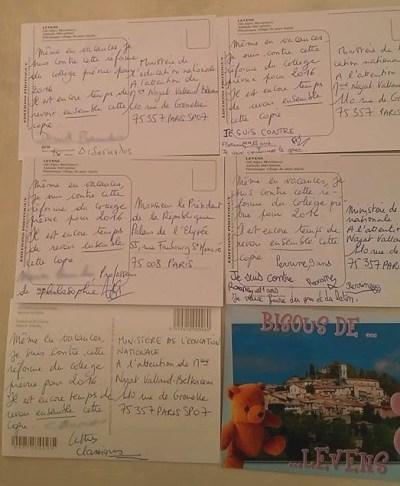 LEVENS
Même en vacances, je
suis contre cette réforme
du collège prévue pour
2016
Il est encore temps de
revoir ensemble cette
copie
Ministère de
éducation nationale
A l'attention de
Mme Najat Vallaud Belkacem
110 rue de Grenelle
75357 PARIS SP07
LEVENS
Même en vacances, je
suis contre cette
réforme du collège
prévue pour 2016
Il est encore temps
de revoir ensemble
cette copie
JE SUIS CONTRE
Ministère de
nationale
A l'attention
Najat Vallaud
110 rue de
75357 PARIS
LEVENS
Même en vacances,
je suis contre cette
réforme du collège
prévue pour 2016
Il est encore temps
de revoir ensemble
cette copie
Professeur
de philosophie
Monsieur le Président
de la République
Palais de l'Elysée
55, rue Faubourg St Honoré
75008 PARIS
LEVENS
Même en vacances, je
suis contre cette ré-
forme du collège pré-
vue pour 2016
Il est encore temps de
revoir ensemble cette
copie
Je suis contre
Je veux faire du grec et du latin.
Ministère de
nationale
A l'attention
Najat Vallaud
110 rue de
75357 PARIS
Même en vacances,
je suis contre cette
réforme du collège
prévue pour 2016
Il est encore temps de
revoir ensemble cette
copie
Lettres
Classiques
MINISTERE DE L'EDUCATION
NATIONALE
A l'attention de Mme
Najat Vallaud-Belkacem
110 rue de Grenelle
75357 PARIS SP07
BISOUS DE ...
...LEVENS